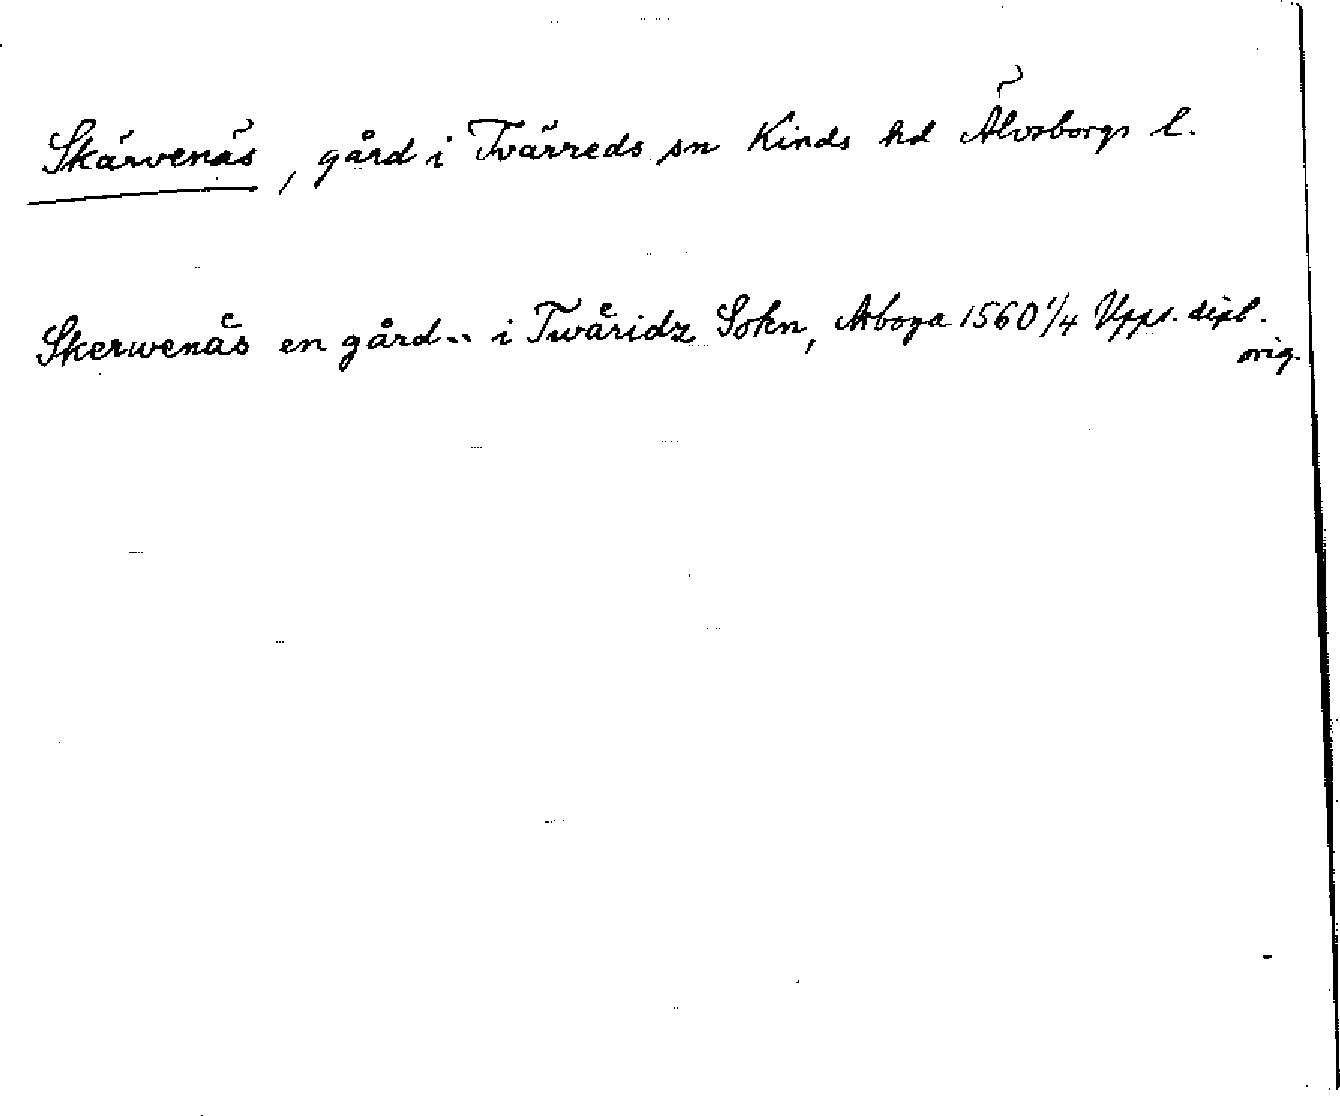 Skärvenäs, gård i Tvärreds sn Kinds hd Älvsborgs l.
Skerwenäs en gård.. i Twäridz Sokn, Arboga 1560 1/4 Upps. dipl.
orig.